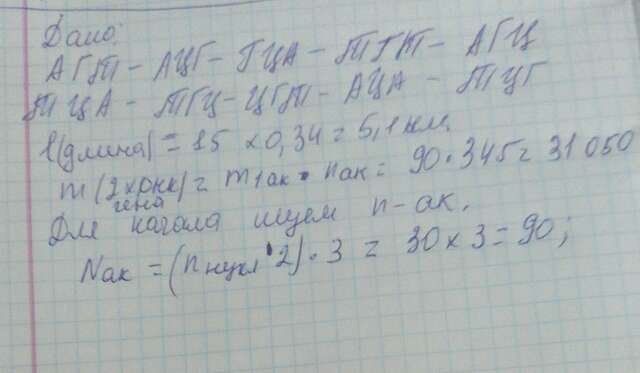 Дано:
АГТ - АЦГ - ГЦА - ТГТ - АГЦ
ТЦА - ТГЦ - ЦГТ - АЦА - ТЦГ
l(длина) = 15 × 0,34 = 5,1 нм
m (2х ДНК) = m 1 ак • nак = 90 • 345 = 31 050
гена
Для начала ищем n - ак.
Nак = (nнукл • 2) • 3 = 30 × 3 = 90;